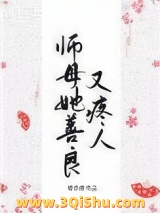 师母她善良
又疼人
www.3Qishu.com